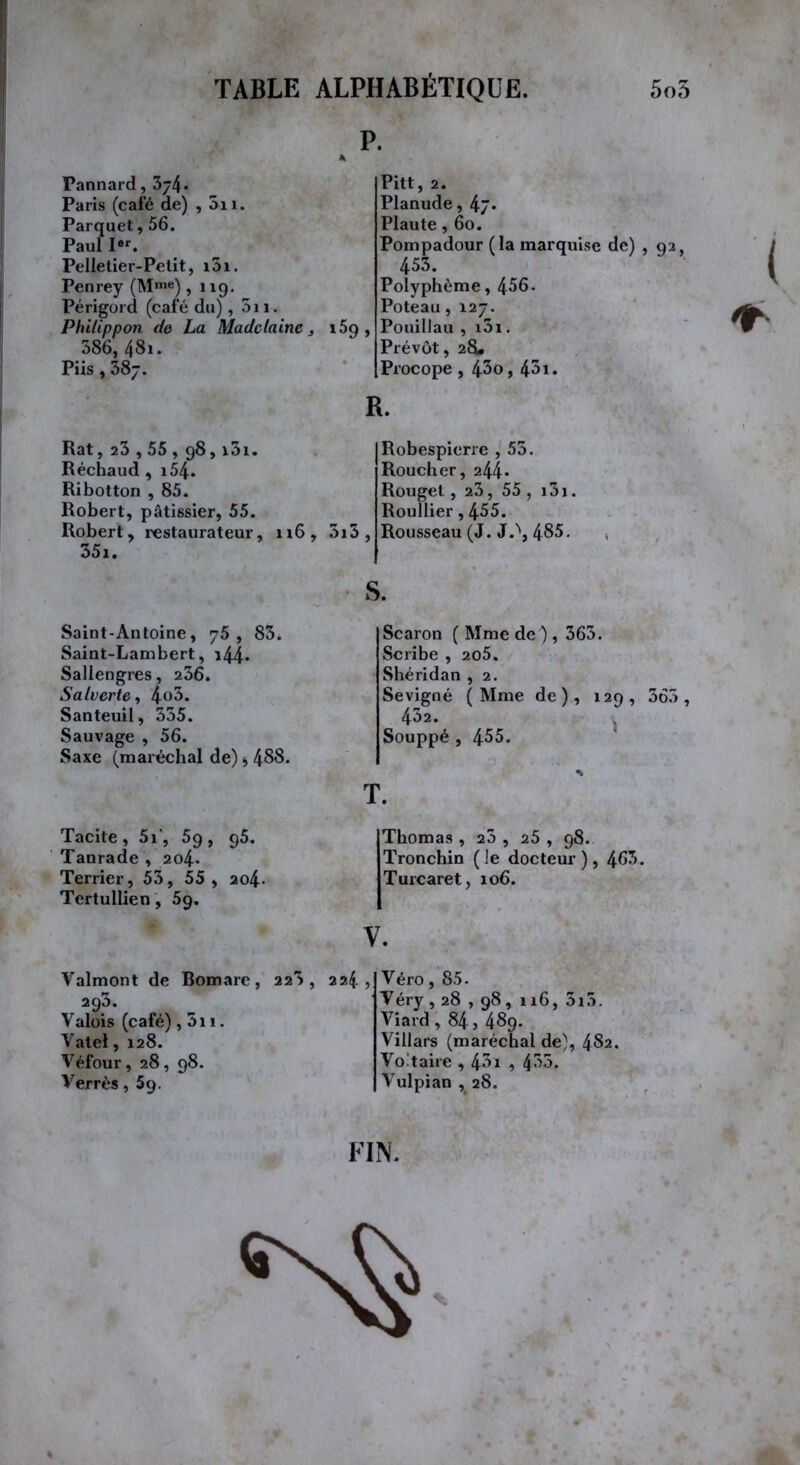 TABLE ALPHABÉTIQUE. 503
P.
Pannard, 374.
Paris (café de), 311.
Parquet, 56.
Paul Ier.
Pelletier-Petit, 131.
Penrey (Mme), 119.
Périgord (café du), 311.
Philippon de La Madelaine, 159,
386, 481.
Piis, 387.
Pitt, 2.
Planude, 47.
Plaute, 60.
Pompadour (la marquise de), 92,
453.
Polyphème, 456.
Poteau, 127.
Pouillau, 131.
Prévôt, 28.
Procope, 430, 431.
R.
Rat, 23, 55, 98, 131.
Réchaud, 154.
Ribotton, 85.
Robert, pâtissier, 55.
Robert, restaurateur, 116, 313,
351.
Robespierre, 53.
Roucher, 244.
Rouget, 23, 55, 131.
Roullier, 455.
Rousseau (J. J.), 485.
S.
Saint-Antoine, 75, 83.
Saint-Lambert, 144.
Sallengres, 236.
Salverte, 403.
Santeuil, 335.
Sauvage, 56.
Saxe (maréchal de), 488.
Scaron (Mme de), 363.
Scribe, 205.
Shéridan, 2.
Sevigné (Mme de), 129, 363,
432.
Souppé, 455.
T.
Tacite, 51, 59, 95.
Tanrade, 204.
Terrier, 53, 55, 204.
Tertullien, 59.
Thomas, 23, 25, 98.
Tronchin (le docteur), 463.
Turcaret, 106.
V.
Valmont de Bomare, 223, 224,
293.
Valois (café), 311.
Vatel, 128.
Véfour, 28, 98.
Verrès, 59.
Véro, 85.
Véry, 28, 98, 116, 313.
Viard, 84, 489.
Villars (maréchal de), 482.
Voltaire, 431, 433.
Vulpian, 28.
FIN.